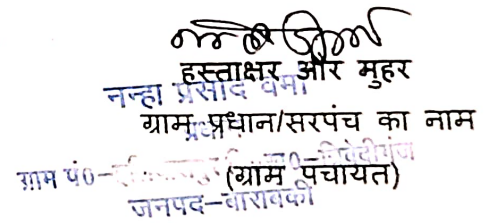 हस्ताक्षर और मुहर
नन्हा प्रसाद वर्मा
ग्राम प्रधान/सरपंच का नाम
प्रधान
ग्राम पं०-
(ग्राम पंचायत)
जनपद-बाराबंकी